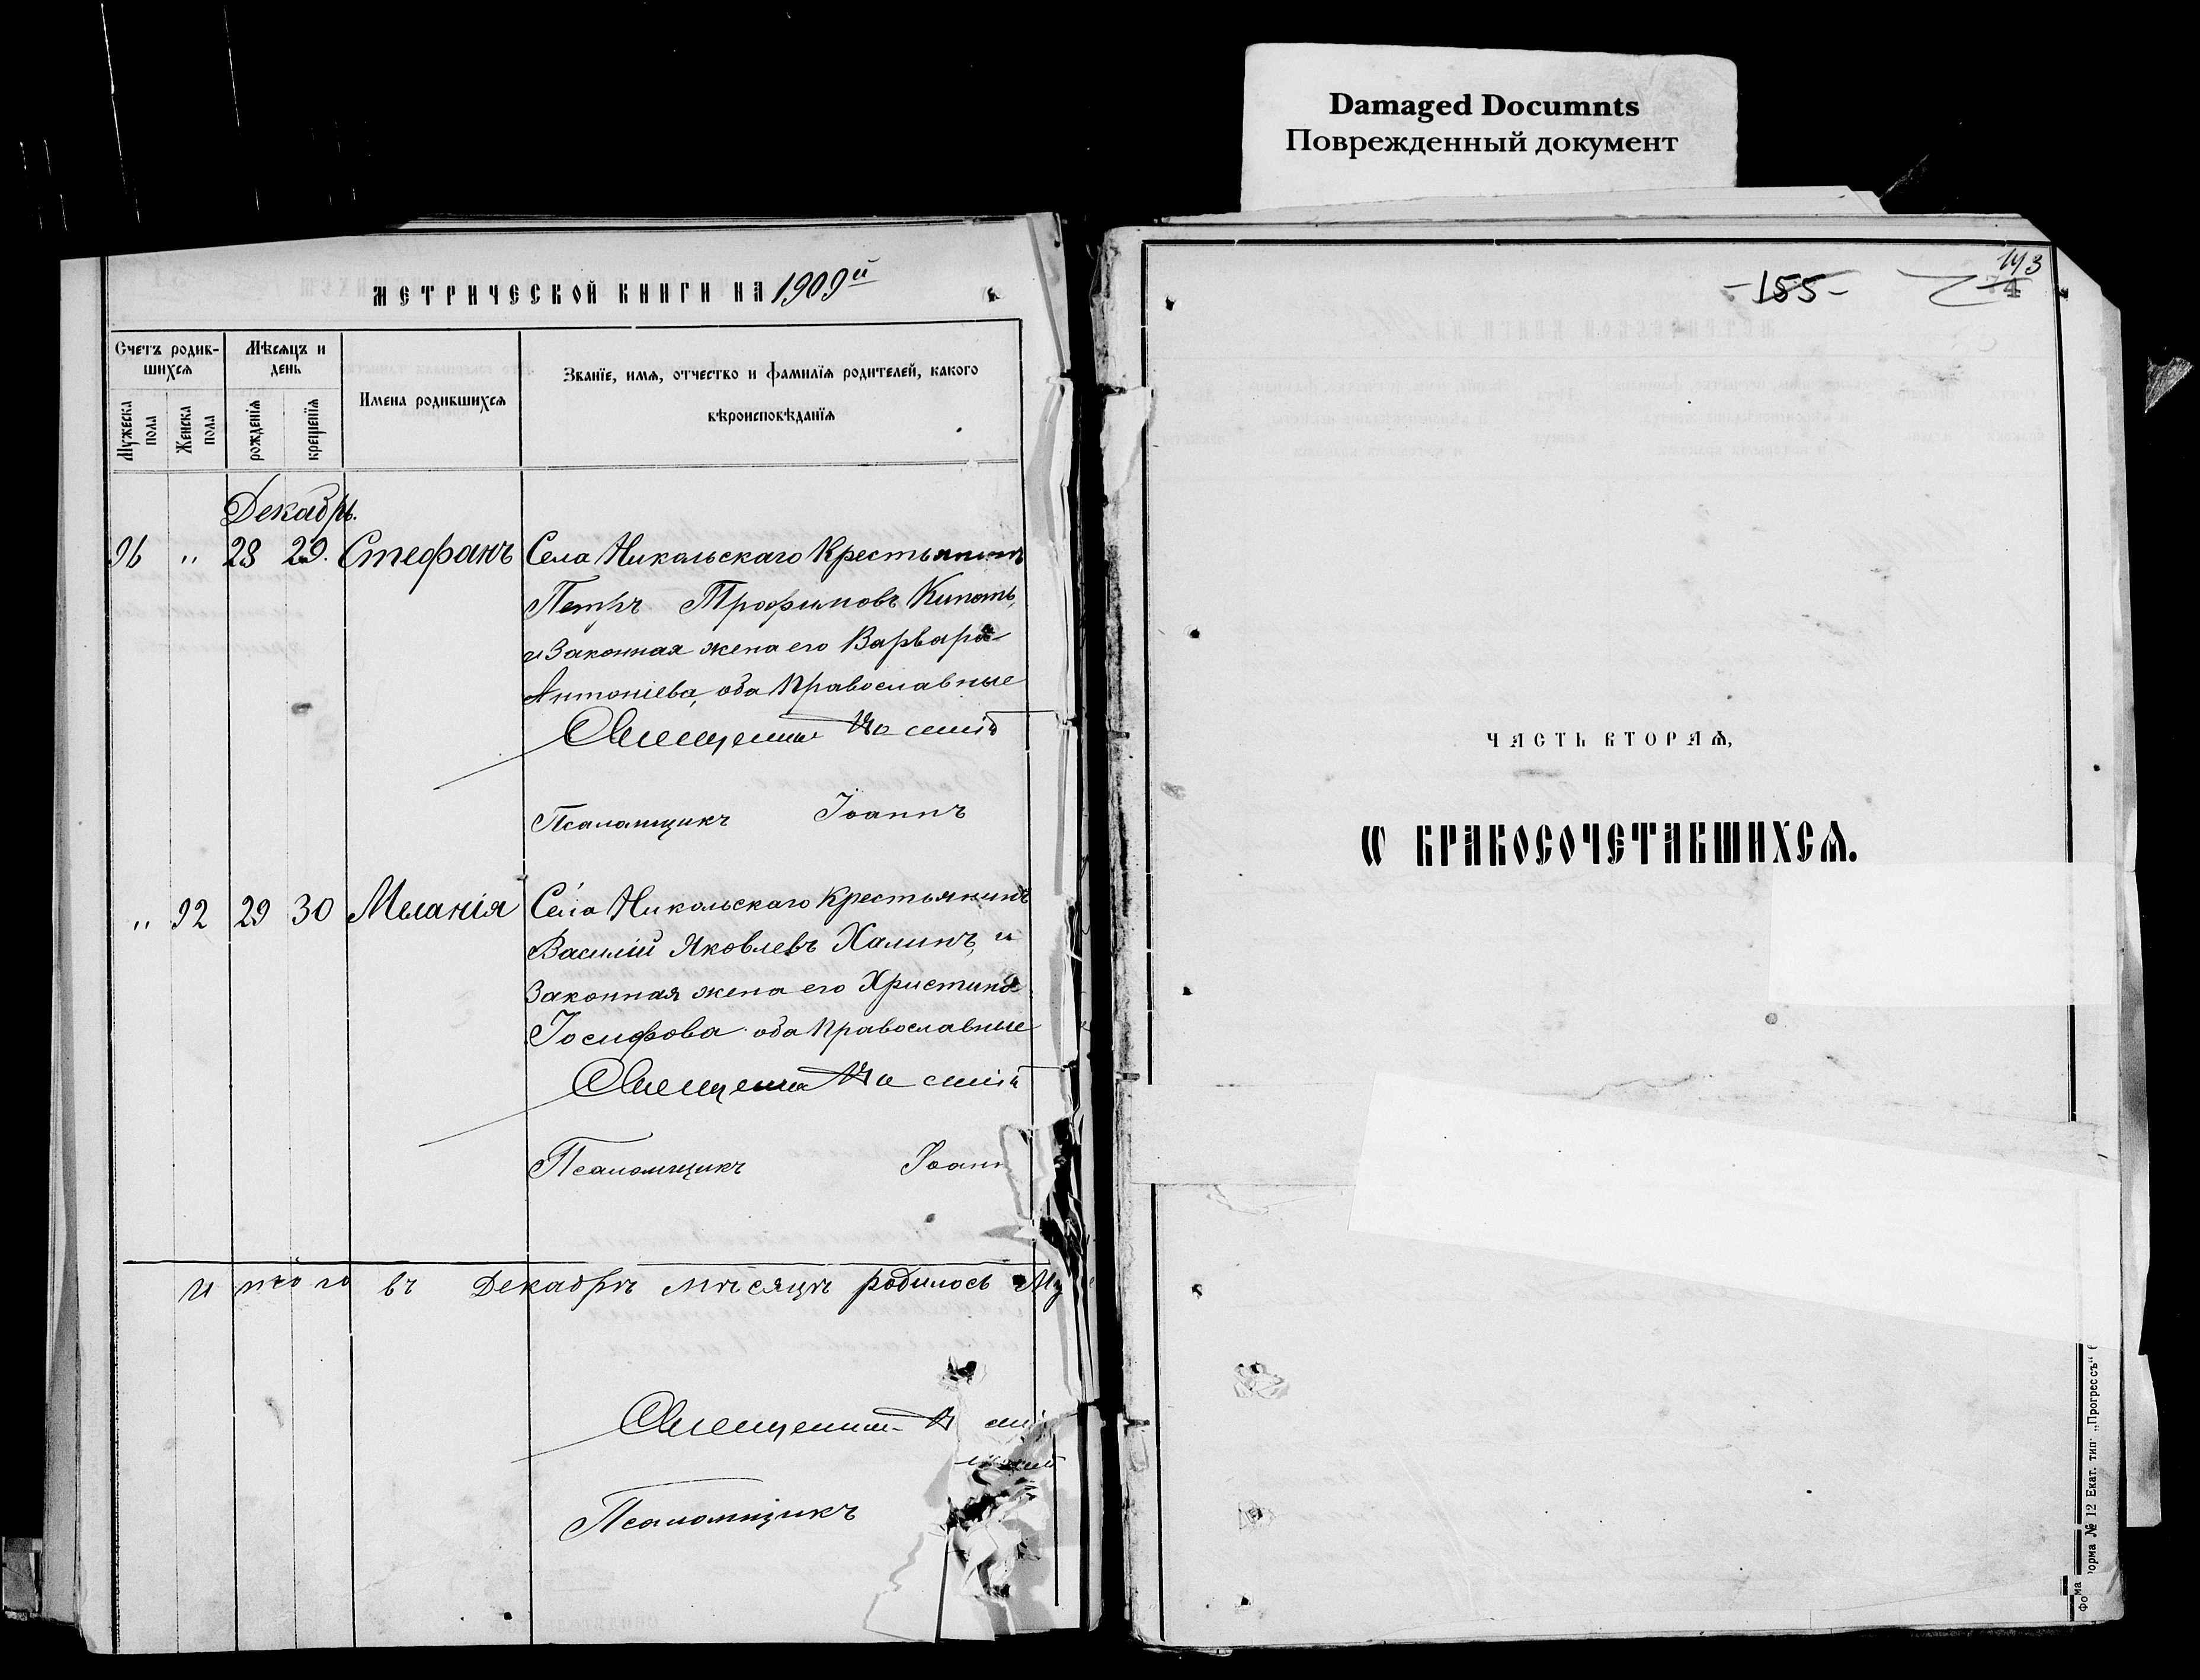 Damaged Documnts
Поврежденный документ
МЕТРИЧЕСКОЙ КНИГИ НА 1909й
Счетъ родившихся
Мѣсяцъ и день
Имена родившихся
Званїе, имя, отчество и фамилїя родителей, какого
вѣроисповѣданїя
Мужеска пола
Женска пола
рожденїя
крещенїя
Декабрь.
96 " 28 29. Стефанъ Села Никольскаго Крестьянинъ
Петръ Трофимовъ
и Законная жена его Варвара
Антонiева, оба Православные
Священникъ
Псаломщикъ Iоаннъ
" 92 29 30 Меланiя Села Никольскаго Крестьянинъ
Василiй Яковлевъ Халинъ, и
Законная жена его Христина
Iосифова оба Православные
Священник
Псаломщикъ Iоанн
Итого въ Декабрѣ мѣсяцѣ родилось Му
Священник
Псаломщикъ
-155-
143
4
ЧАСТЬ ВТОРАЯ,
Ѡ БРАКОСОЧЕТАВШИХСЯ.
орма № 12 Екат. тип. „Прогрессъ“